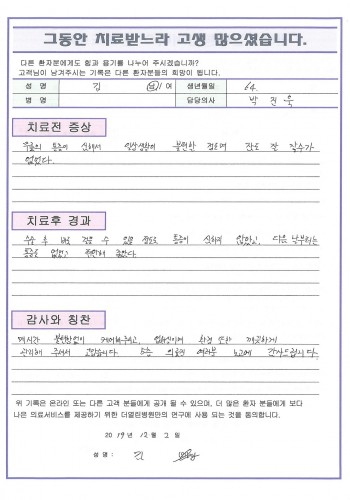 그동안 치료받느라 고생 많으셨습니다.
다른 환자분에게도 힘과 용기를 나누어 주시겠습니까?
고객님이 남겨주시는 기록은 다른 환자분들의 희망이 됩니다.
성 명 김 남/여 생년월일 64.
병 명 담당의사 박진욱
치료전 증상
무릎의 통증이 심해서 일상생활이 불편한 정도며 잠도 잘 잘수가
없었다.
치료후 경과
수술 후 바로 걸을 수 있을 정도로 통증이 심하지 않았고, 다음 날부터는
통증도 없었고
감사와 칭찬
고맙습니다. 5층 의료진 여러분 노고에 감사드립니다.
위 기록은 온라인 또는 다른 고객 분들에게 공개 될 수 있으며, 더 많은 환자 분들에게 보다
나은 의료서비스를 제공하기 위한 더열린병원만의 연구에 사용 되는 것을 동의합니다.
2019년 12월 2일
성 명 : 김